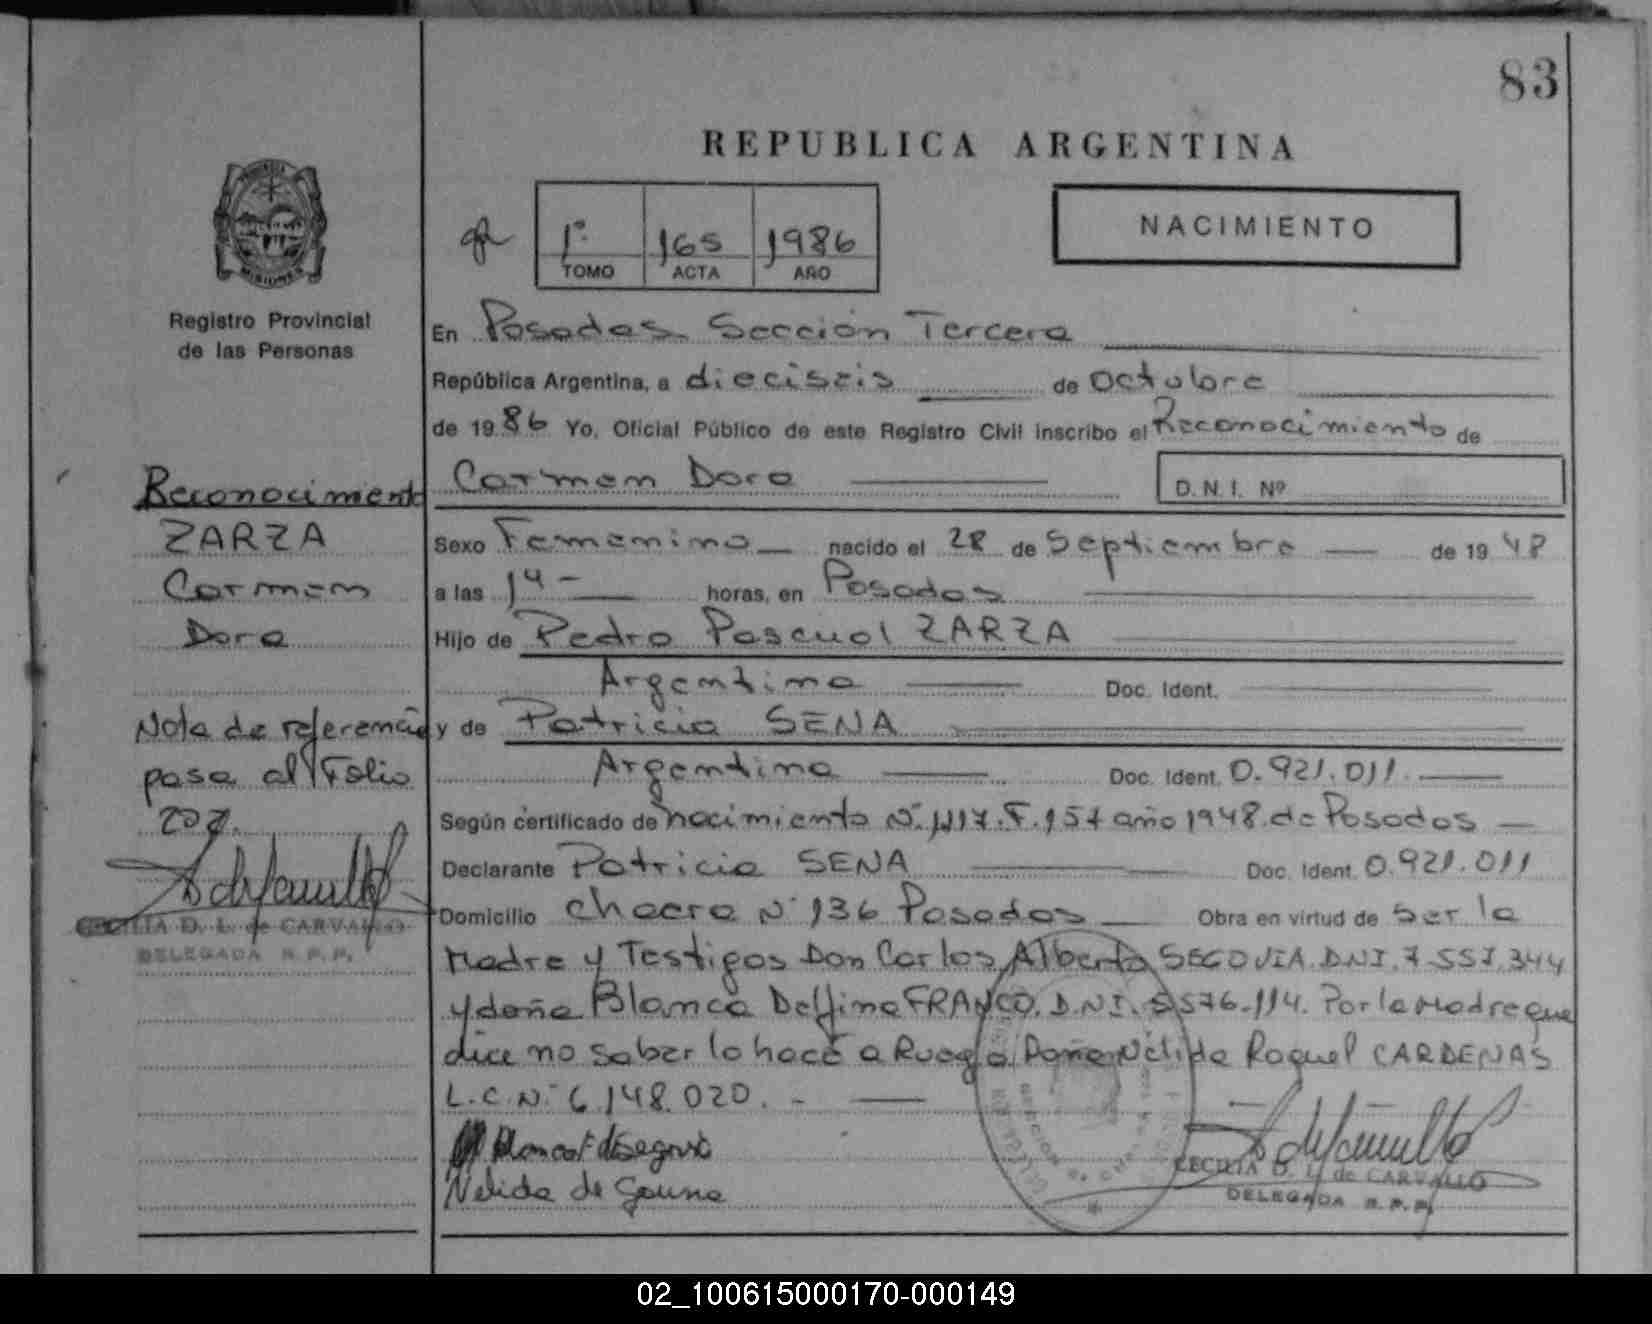 83
REPUBLICA ARGENTINA
NACIMIENTO
1º 165 1986
TOMO ACTA AÑO
MISIONES
Registro Provincial
de las Personas
En Posadas Sección Tercera
República Argentina, a dieciseis de octubre
de 1986 Yo, Oficial Público de este Registro Civil inscribo el Reconocimiento de
Carmen Dora D.N.I. Nº
Sexo Femenino nacido el 28 de Septiembre de 1948
a las 14 - horas, en Posadas
Hijo de Pedro Pascual ZARZA
Argentina Doc. Ident.
y de Patricia SENA
Argentina Doc. Ident. 0.921.011.
Según certificado de nacimiento Nº 1117. F. 157 año 1948 de Posadas
Declarante Patricia SENA Doc. Ident. 0.921.011
Domicilio Chacra Nº 136 Posadas Obra en virtud de Ser la
Madre y Testigos Don Carlos Alberto SEGOVIA. DNI. 7.557.344
y doña Blanca Delfina FRANCO. D.N.I. 5.576.114. Por la Madre que
dice no saber lo hace a Ruego Doña Nélida Raquel CARDENAS
L.C.Nº 6.148.020. -
Nelida de Gauna
CECILIA D. L. de CARVALLO
DELEGADA R.P.P.
Reconocimiento
ZARZA
Carmen
Dora
Nota de referencia
pasa al Folio
207.
CECILIA D. L. de CARVALLO
DELEGADA R.P.P.
02_100615000170-000149